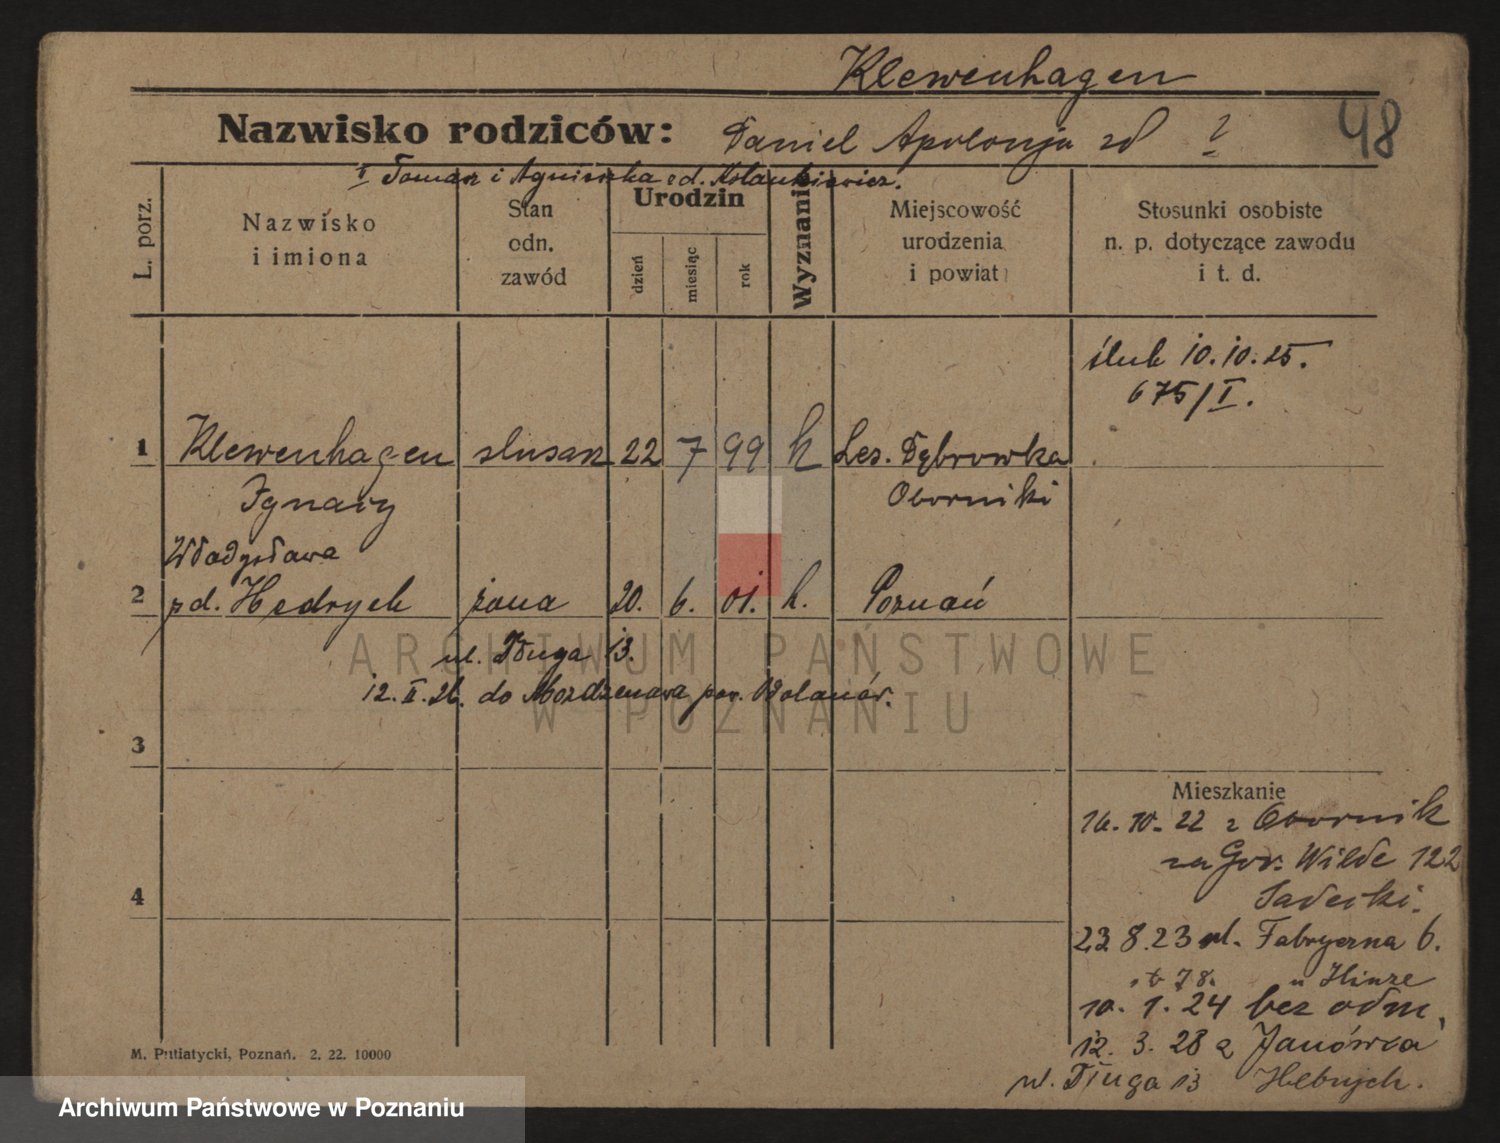 Klewenhagen
Nazwisko rodziców: Daniel Apolonja zd ?
48
I Tomasz i Agnieszka zd. Kolankiewicz.
L. porz.
Nazwisko
i imiona
Stan
odn.
zawód
Urodzin
dzień
miesiąc
rok
Wyznanie
Miejscowość
urodzenia
i powiat
Stosunki osobiste
n. p. dotyczące zawodu
i t. d.
ślub 10.10.25.
675/I.
1 Klewenhagen ślusarz 22 7 99 k Les. Dąbrowka
Ignacy Oborniki
Władysława
2 zd. Hedrych żona 20. 6. 01. k. Poznań
ul. Długa 13.
12. II. 26. do pow.
3
Mieszkanie
16. 10. 22 z Obornik
na Gór. Wilde 122
Sadecki.
4
23 8. 23 ul. Fabryczna 6.
u Hinze
10. 1. 24 bez odm.
12. 3. 28 z Janówca
ul. Długa 13
M. Putiatycki, Poznań. 2. 22. 10000
ARCHIWUM PAŃSTWOWE
W POZNANIU
Archiwum Państwowe w Poznaniu